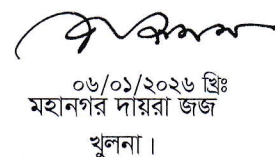 ০৬/০১/২০২৬ খ্রিঃ
মহানগর দায়রা জজ
খুলনা।